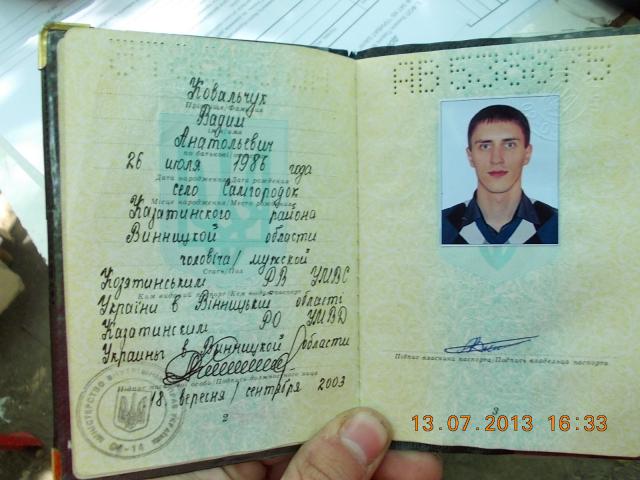 Ковальчук
Прізвище/Фамилия
Вадим
Анатольевич
по батькові
26 июля 1986 года
Дата народження/Дата рождения
село Самгородок
Місце народження/Место рождения
Казатинского района
Винницкой области
чоловіча/мужской
Стать/Пол
Козятинським РВ УМВС
Ким виданий паспорт/Кем выдан паспорт
України в Вінницькій області
Казатинским РО УМВД
Украины в Винницкой области
18 вересня/сентября 2003
2
Підпис власника паспорта/Подпись владельца паспорта
3
13.07.2013 16:33